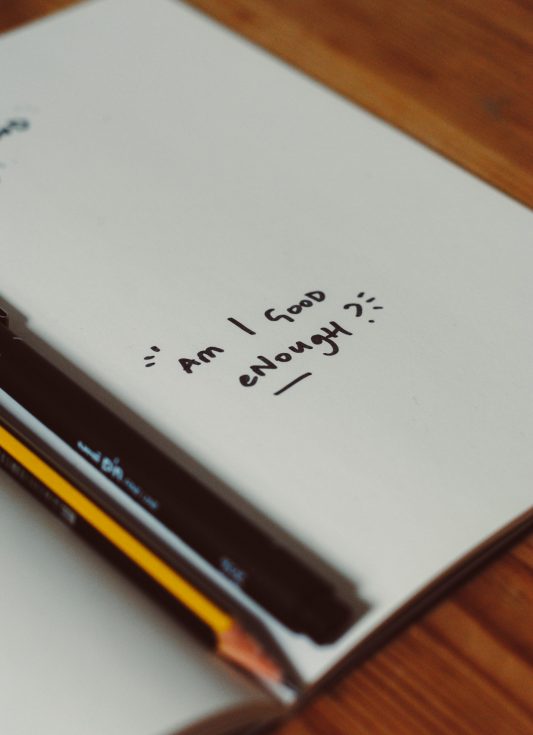 Am I GooD
eNough?